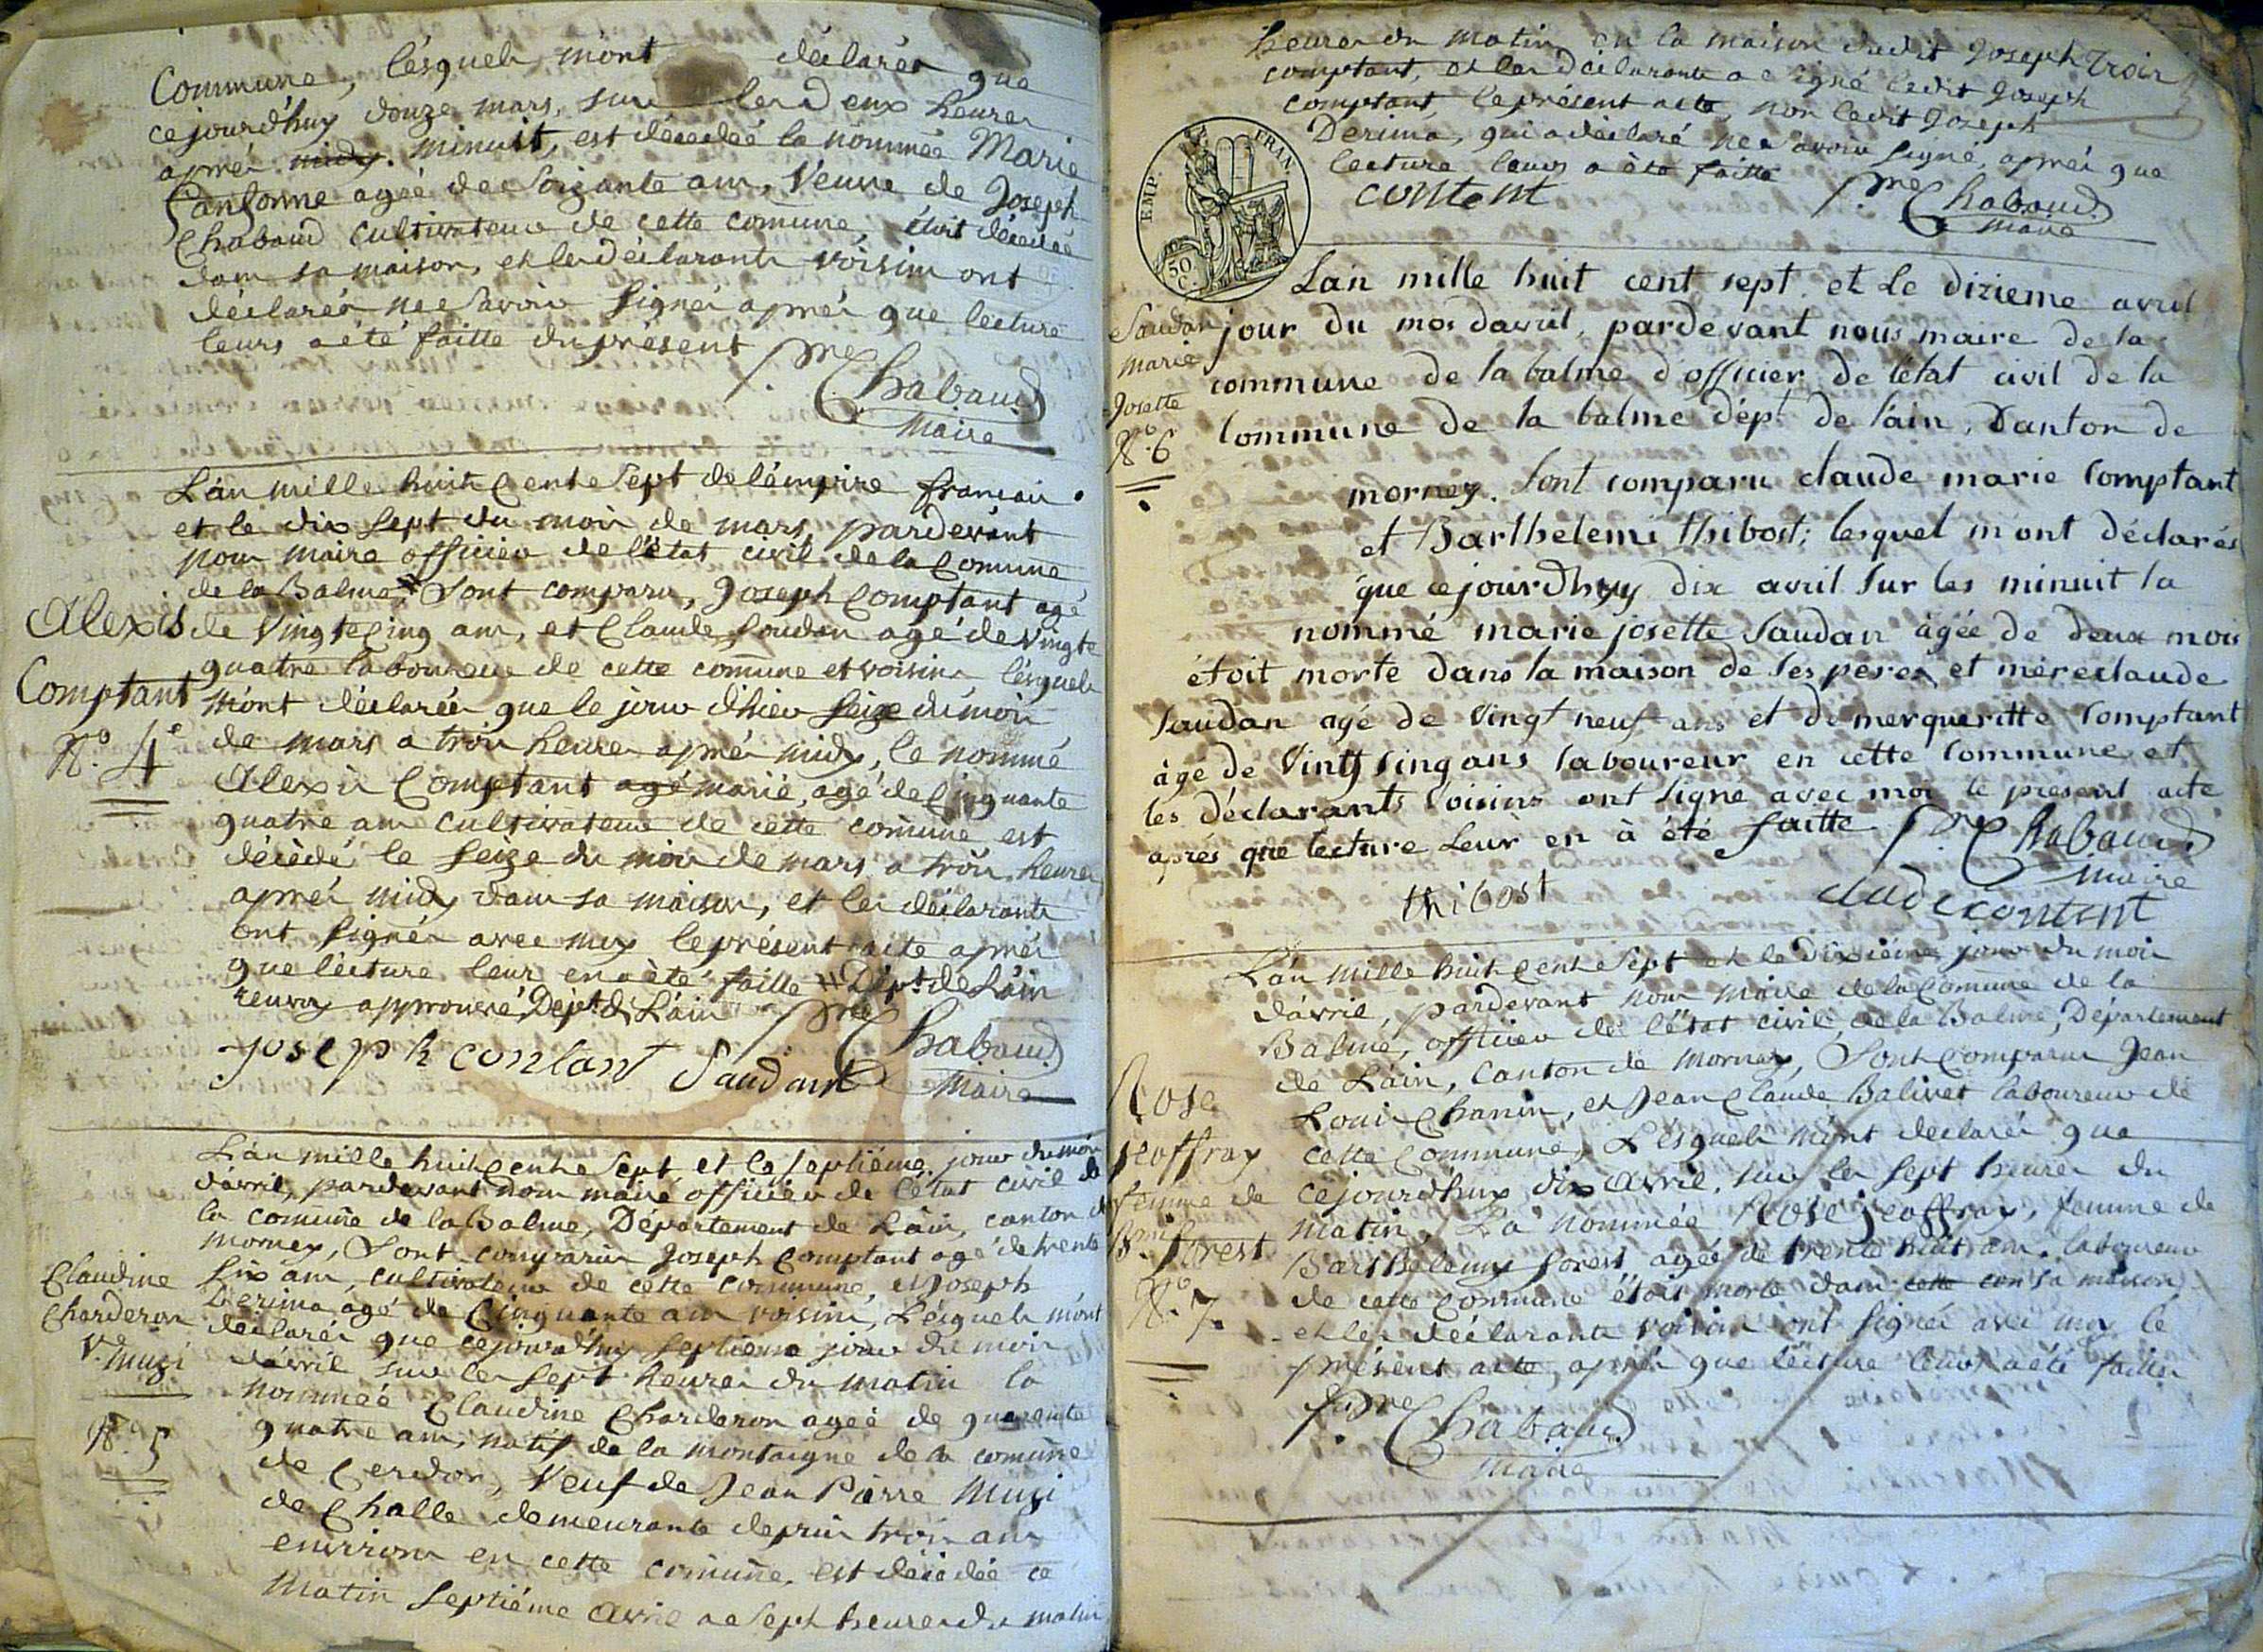 Commune, lésquels m'ont déclarés que
ce jourd'huy douze mars, sur les deux heures
aprés midy. minuit, est décedéé la nommée Marie
Santonne agéé de Soizante ans, Veuve de Joseph
Chabaud cultivateur de cette comune, étoit décedéé
dans sa maison, et les déclarants voisins ont
déclarés ne Savoir Signér aprés que lecture
leurs a été faitte du présent
Pre Chabaud
Maire
L'an mille huit Cents Sept de l'émpire francais
et le dix Sept du mois de mars, pardevant
nous maire officier de l'état civil de la Comune
de la Balme # Sont comparu, Joseph Comptant agé
de Vingt Cinq ans, et Claude Soudan agé de vingte
quatre laboureur de cette comune et voisins lésquels
m'ont déclarés que le jour d'hier Seize du mois
de mars a trois heures aprés midy, le nommé
Alexis Comptant agé marié, agé de Cinquante
quatre ans cultivateur de cette comune est
décédé le Seize du mois de mars a trois heures
aprés midy dans sa maison, et les déclarants
ont Signés avec moy le présent acte aprés
que lécture leur en a été faitte # Dépt de L'ain
renvoy approuvé Dépt de L'ain
Pre Chabaud
Maire
joseph contant Saudant
Alexis
Comptant
N.o 4
L'an mille huit cents Sept et le Septiéme jour du mois
d'avril, pardevant nous maire officier de l'état civil de
la comune de la Balme, Département de L'ain, canton de
mornay, Sont comparus Joseph Comptant agé de trente
Six ans, cultivateur de cette commune, et Joseph
Derima, agé de Cinquante ans voisins, Lésquels m'ont
déclarés que ce jourd'huy Septieme jour du mois
d'avril sur les Sept heures du matin la
nomméé Claudine Charderon agéé de quarente
quatre ans, natif de la montaigne de la comune
de Cerdon, Veuf de Jean Pierre Muzi
de Challe demeurante depuis trois ans
environs en cette comune, est décédéé ce
Matin Septiéme Avril a Sept heures du matin
Claudine
Charderon
Ve Muzi
N.o 5
heures du matin en la maison dudit Joseph Trois
comptant, et les déclarants a Signé ledit Joseph
comptant, le présent acte, non ledit Joseph
Derima, qui a déclaré ne Savoir Signé, aprés que
lecture leurs a été faitte
content
Pre Chabaud
Maire
EMP. FRAN.
50 C.
Lain mille huit cent sept. et Le dizieme avril
jour du mos davril, pardevant nous maire de la
commune de la balme d'officier De l'état civil de la
Commune de la balme dépt de l'ain, Danton de
mornay. Sont comparu claude marie Comptant
et Barthelemi thibost; lesquel m'ont déclarés
que ce jourdhuy dix avril Sur les minuit la
nommé marie josette Saudan âgée de deux mois
étoit morte dans la maison de ses peres et mére claude
Saudan agé de Vingt neuf ans et de merqueritte Comptant
âgé de Vintg sing ans laboureur en cette Commune et
les déclarants Voisins ont Signe avec moi le présent acte
aprés que lecture Leur en à été faitte
Pre Chabaud
maire
thibost
claude content
Saudan
marie
Josette
N.o 6
L'an mille huit Cents Sept et le Dixiéme jour du mois
d'avril, pardevant nous Maire de la Comune de la
Balme, officier de l'état civil, de la Balme, Département
de L'ain, Canton de Mornay, Sont Comparus Jean
Loui Chanin, et Jean Claude Balivet laboureur de
cette Commune, Lésquels m'ont declarés que
ce jourd'huy dix avril, sur les Sept heures du
matin, La nommée Rose jeoffray, femme de
Barthelemy forest agéé de trente huit ans. laboureur
de cette Commune étoit morte dans cette con sa maison
et les déclarants voisin ont Signés avec moy le
présent acte, aprés que lécture leurs a été faitte
Pre Chabaud
Maire
Rose
jeoffray
femme de
forest
N.o 7